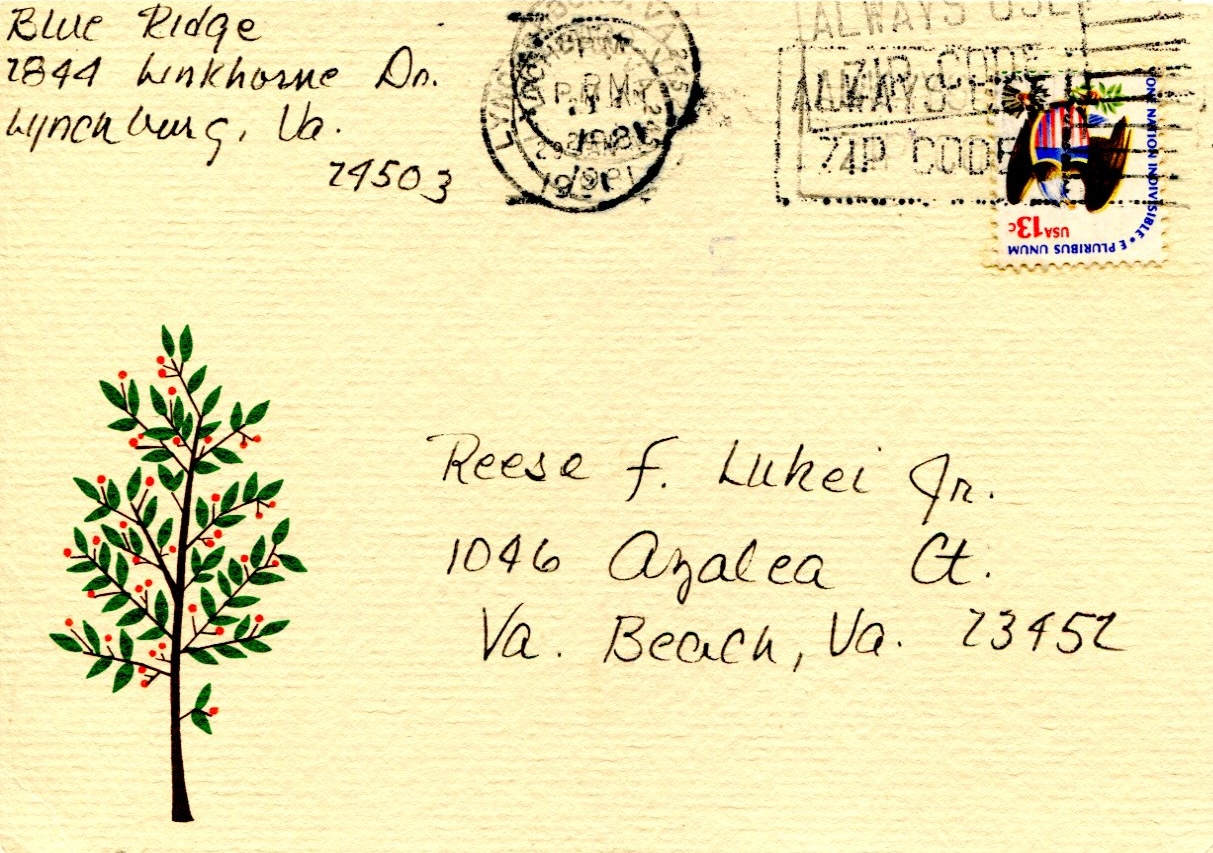 Blue Ridge
1844 Linkhorne Dr.
Lynchburg, Va.
24503
PM
1981
ALWAYS USE
ZIP CODE
ALWAYS USE
ZIP CODE
ONE NATION INDIVISIBLE • E PLURIBUS UNUM
USA 13c
Reese F. Lukei Jr.
1046 Azalea Ct.
Va. Beach, Va. 23452